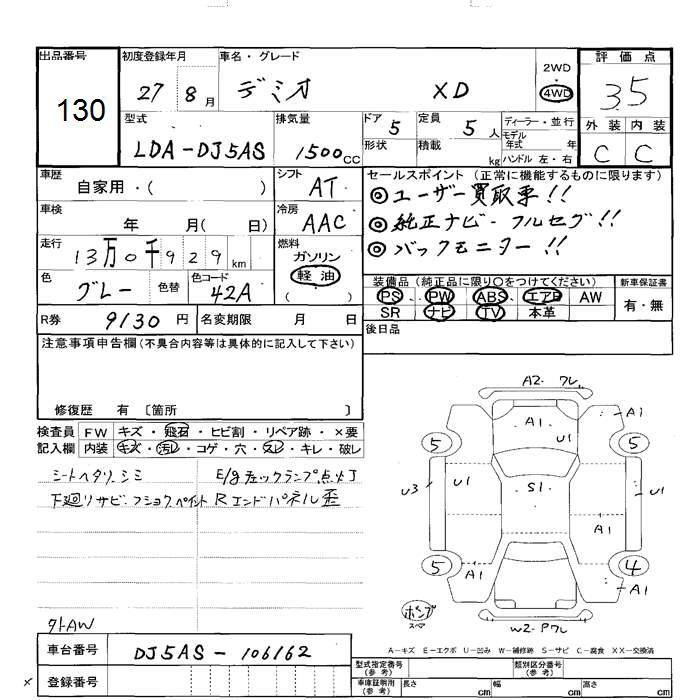 出品番号 初度登録年月 車名・グレード 評価点
130 27年 8月 デミオ XD 2WD 4WD 3.5
型式 排気量 ドア 定員 ディーラー・並行 外装 内装
LDA-DJ5AS 1500cc 5 5人 モデル年式 年 C C
形状 積載 kg ハンドル 左・右
車歴 自家用・( ) シフト AT セールスポイント (正常に機能するものに限ります)
◎ユーザー買取車!!
車検 年 月( 日) 冷房 AAC ◎純正ナビ・フルセグ!!
走行 13万0千929km 燃料 ガソリン 軽油 ( ) ◎バックモニター!!
色 グレー 色替 色コード 42A 装備品 (純正品に限り○をつけてください) 新車保証書
PS、 PW ABS、 エアB AW 有・無
R券 9130円 名変期限 月 日 SR ナビ TV 本革
後日品
注意事項申告欄(不具合内容等は具体的に記入して下さい)
修復歴 有 〔箇所 〕
検査員 FW キズ・飛石・ヒビ割・リペア跡・×要
記入欄 内装 キズ・汚レ・コゲ・穴・スレ・キレ・破レ
シートヘタリ シミ E/gチェックランプ点灯
下廻リサビ・フショク・ペイント Rエンドパネル歪
A2・ワレ
A1 A1
U1
5 5
U3 U1 S1 U1
A1
5 A1 4
A1
ポンプ
スペア
W2・Pワレ
外AW
A-キズ E-エクボ U-凹み W-補修跡 S-サビ C-腐食 XX-交換済
車台番号 DJ5AS-106162
型式指定番号(参考) 類別区分番号(参考)
× 登録番号
車庫証明用(参考) 長さ cm 幅 cm 高さ cm